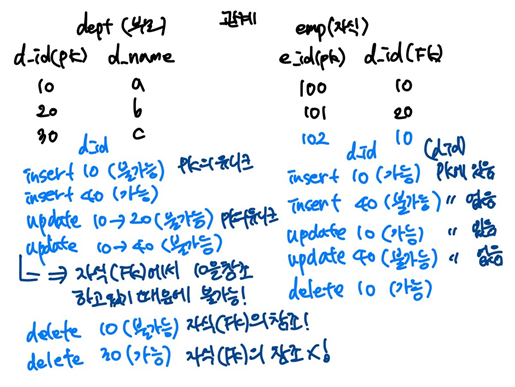 dept (부모) 관계 emp(자식)
d_id(pk) d_name e_id(pk) d_id(FK)
10 a 100 10
20 b 101 20
30 c 102 10
d_id d_id (d_id)
insert 10 (불가능) PK의 유니크
insert 10 (가능) PK에 있음
insert 40 (가능)
insert 40 (불가능) " 없음
update 10→20(불가능) PK유니크
update 10 (가능) " 있음
update 10→40 (불가능)
update 40 (불가능) " 없음
⇒ 자식(FK)에서 10을 참조
하고있기 때문에 불가능!
delete 10 (가능)
delete 10 (불가능) 자식(FK)의 참조!
delete 30 (가능) 자식(FK)의 참조X!